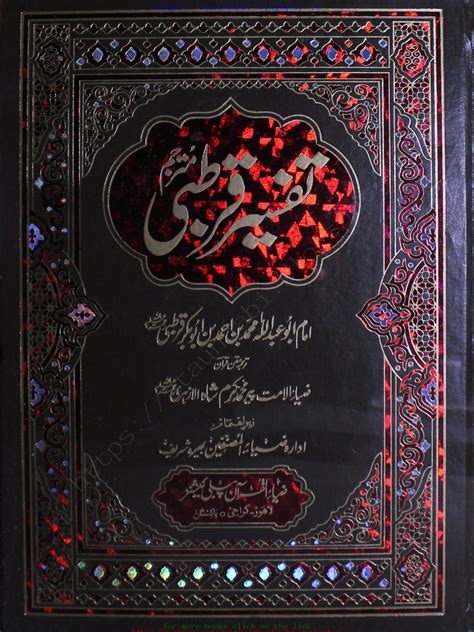 تفسیر قرطبی
مترجم
امام ابو عبد اللہ محمد بن احمد بن ابوبکر قرطبی
ترجمہ متن قرآن
ضیاء الامت پیر محمد کرم شاہ الازہری
زیر اہتمام
ادارہ ضیاء المصنفین بھیرہ شریف
ضیاء القرآن پبلی کیشنز
لاہور - کراچی ○ پاکستان
for more books click on the link